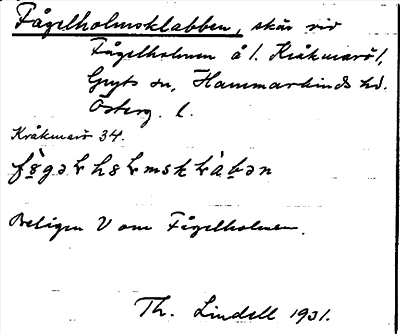 Fågelholmsklabben, skär vid
Fågelholmen å l. Kråkmarö l,
Gryts sn, Hammarkinds hd.
Österg. l.
Kråkmarö 34.
Beligen V om Fågelholmen.
Th. Lindell 1931.